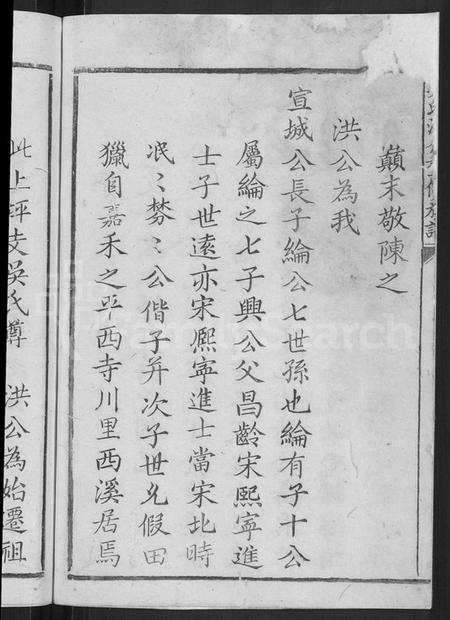 顛末敬陳之
洪公為我
宣城公長子綸公七世孫也綸有子十公
屬綸之七子興公父昌齡宋熙寧進
士子世遠亦宋熙寧進士當宋北時
泯〻棼〻公偕子并次子世允假田
獵自嘉禾之平西寺川里西溪居焉
此上坪支吳氏尊 洪公為始遷祖
FamilySearch